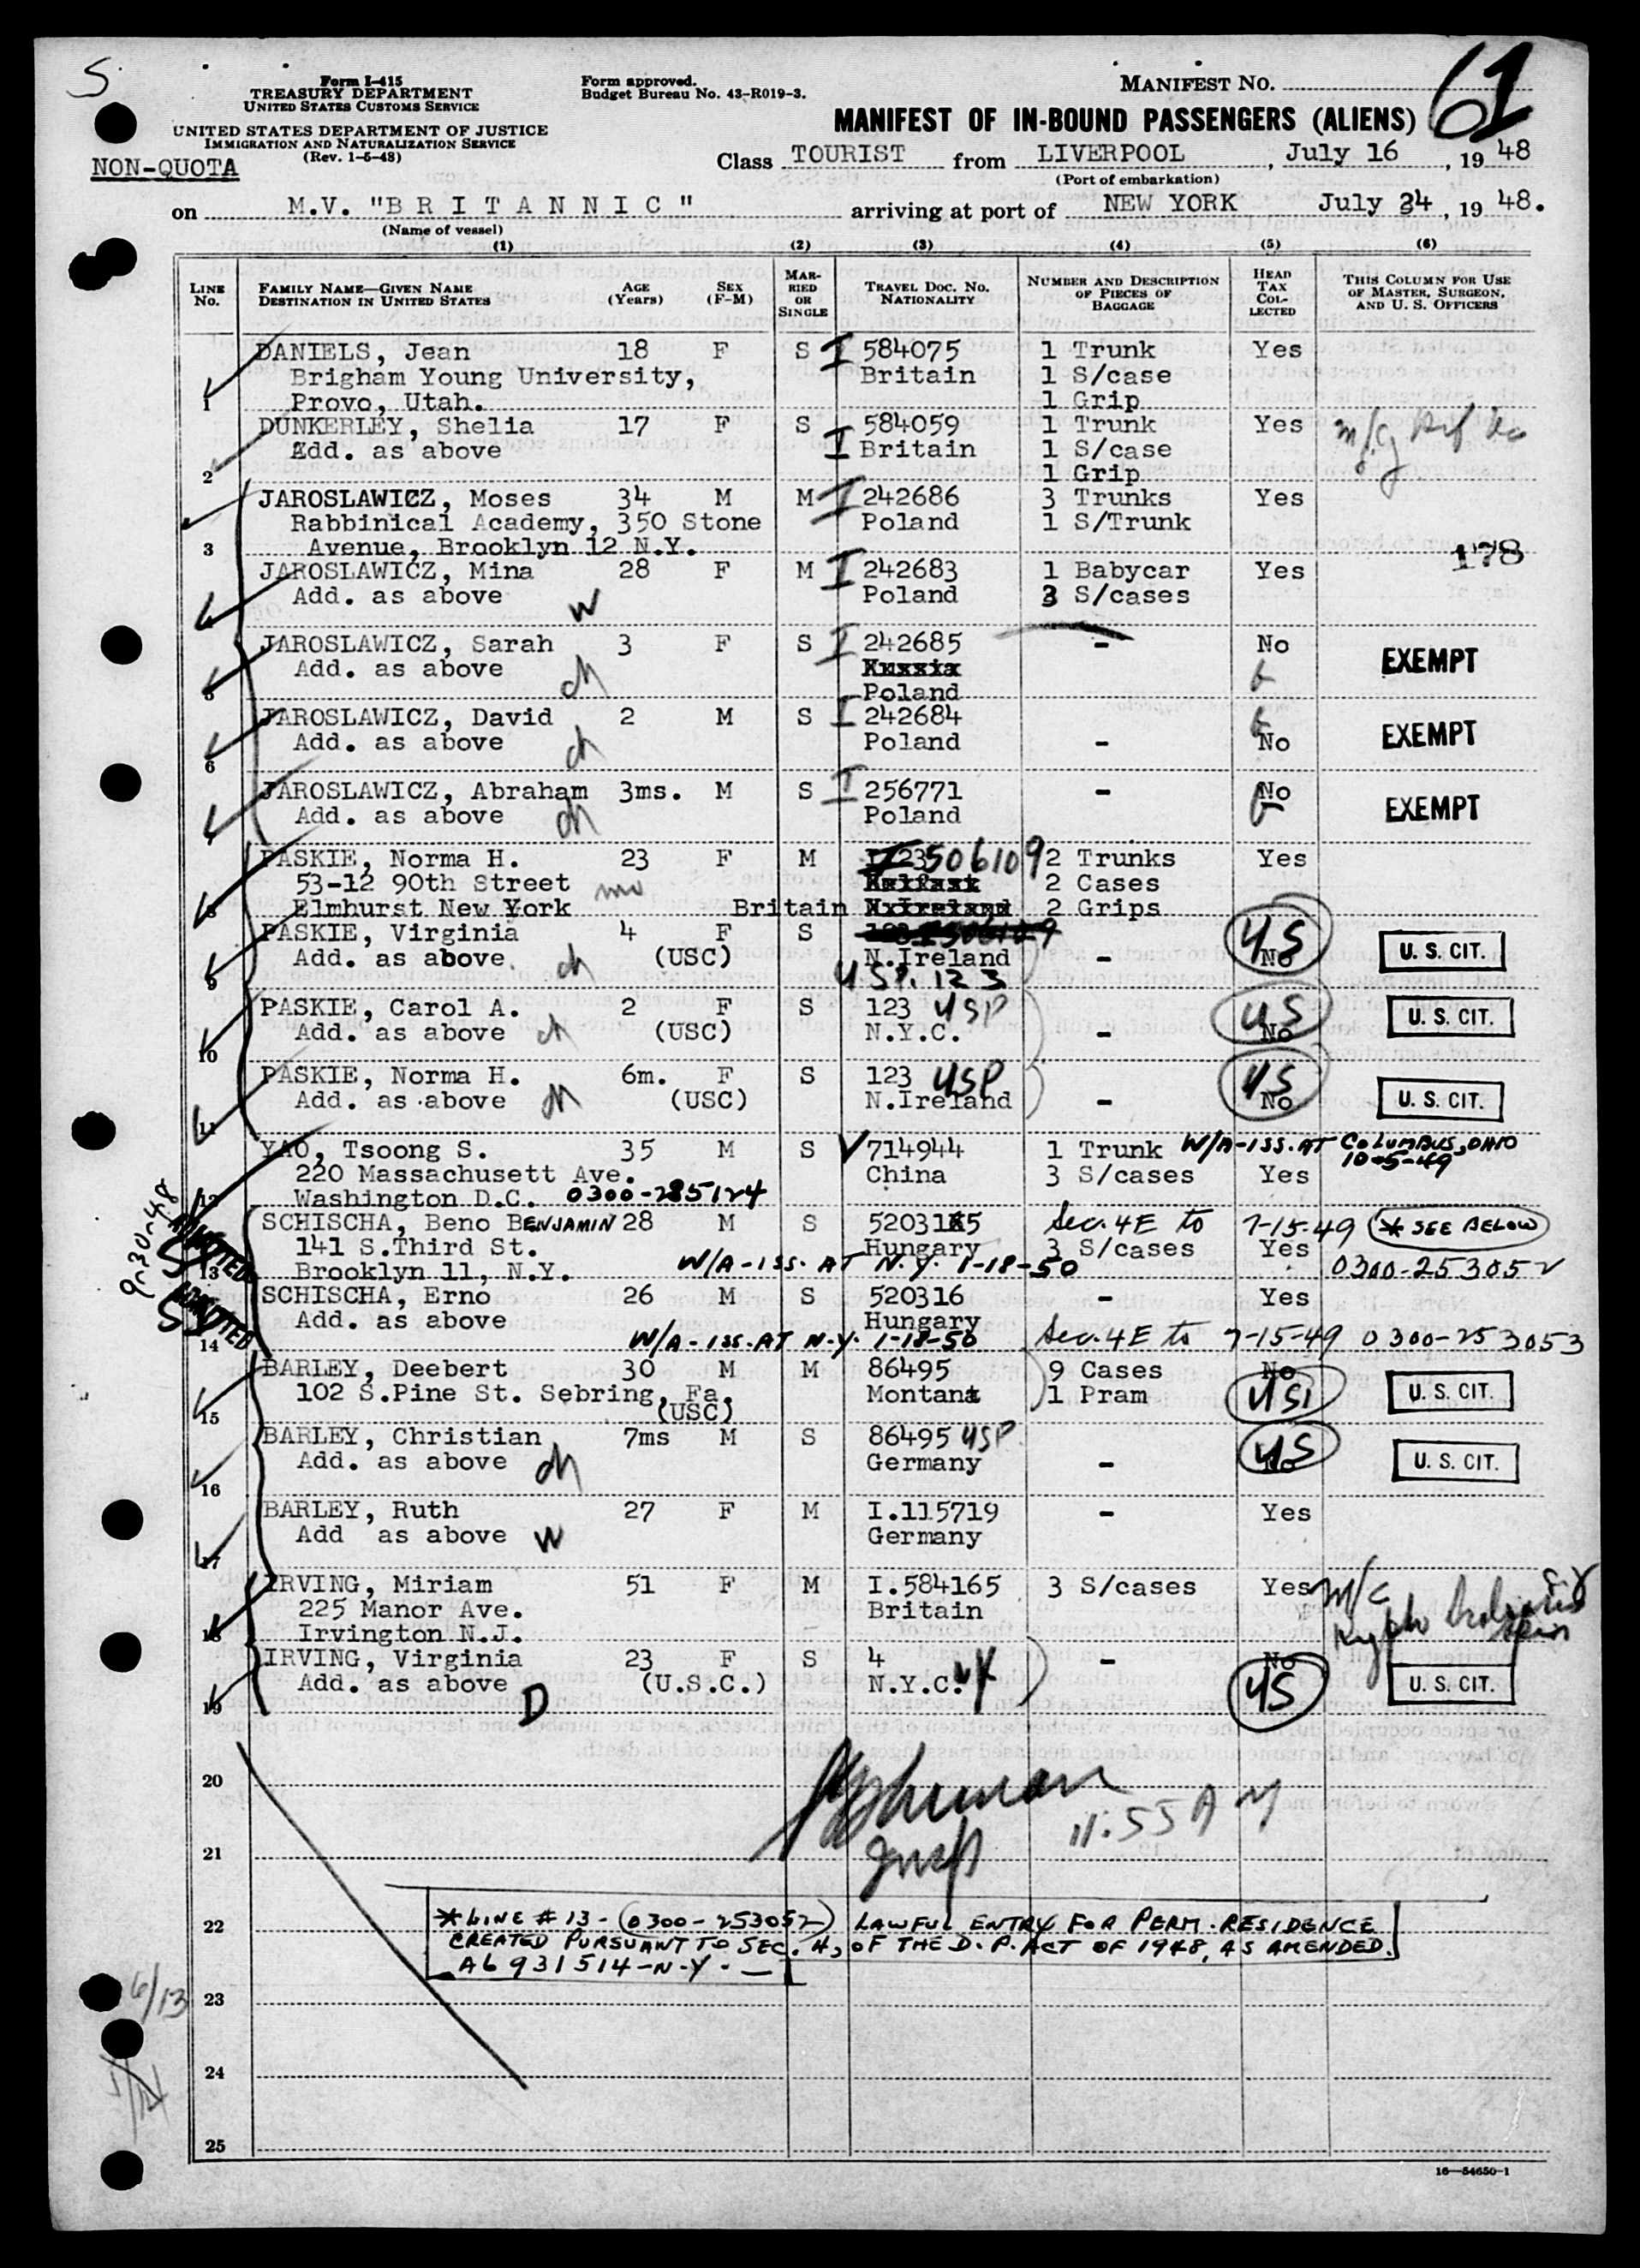 S
61
Form I-415
TREASURY DEPARTMENT
UNITED STATES CUSTOMS SERVICE
UNITED STATES DEPARTMENT OF JUSTICE
IMMIGRATION AND NATURALIZATION SERVICE
(Rev. 1-5-48)
NON-QUOTA
Form approved.
Budget Bureau No. 43-R019-3.
MANIFEST NO.
MANIFEST OF IN-BOUND PASSENGERS (ALIENS)
Class TOURIST from LIVERPOOL, July 16, 19 48
(Port of embarkation)
on M.V. "BRITANNIC" arriving at port of NEW YORK July 24, 19 48.
(Name of vessel)
(1) (2) (3) (4) (5) (6)
LINE No. FAMILY NAME—GIVEN NAME DESTINATION IN UNITED STATES AGE (Years) SEX (F-M) MARRIED OR SINGLE TRAVEL DOC. NO. NATIONALITY NUMBER AND DESCRIPTION OF PIECES OF BAGGAGE HEAD TAX COLLECTED THIS COLUMN FOR USE OF MASTER, SURGEON, AND U. S. OFFICERS
DANIELS, Jean 18 F S I 584075 1 Trunk Yes
Brigham Young University, Britain 1 S/case
1 Provo, Utah. 1 Grip
DUNKERLEY, Shelia 17 F S 584059 1 Trunk Yes
Add. as above I Britain 1 S/case
2 1 Grip
JAROSLAWICZ, Moses 34 M M I 242686 3 Trunks Yes
Rabbinical Academy, 350 Stone Poland 1 S/Trunk
3 Avenue, Brooklyn 12 N.Y. 178
JAROSLAWICZ, Mina 28 F M I 242683 1 Babycar Yes
Add. as above W Poland 3 S/cases
JAROSLAWICZ, Sarah 3 F S I 242685 - No EXEMPT
Add. as above ch Russia
5 Poland
JAROSLAWICZ, David 2 M S I 242684
Add. as above ch Poland - No EXEMPT
6
JAROSLAWICZ, Abraham 3ms. M S I 256771 - No EXEMPT
Add. as above ch Poland
PASKIE, Norma H. 23 F M I 506109 2 Trunks Yes
53-12 90th Street 2 Cases
8 Elmhurst New York Britain 2 Grips
PASKIE, Virginia 4 F S US
Add. as above. ch (USC) N.Ireland - No U. S. CIT.
9 USP. 123
PASKIE, Carol A. 2 F S 123 USP US U. S. CIT.
Add. as above ch (USC) N.Y.C. - No
10
PASKIE, Norma H. 6m. F S 123 USP US
Add. as above ch (USC) N.Ireland - No U. S. CIT.
11
YAO, Tsoong S. 35 M S 714944 1 Trunk W/A-ISS. AT COLUMBUS, OHIO
220 Massachusett Ave. China 3 S/cases Yes 10-5-49
12 Washington D.C. 0300-285124
9-30-48
ADMITTED
SCHISCHA, Beno BENJAMIN 28 M S 520315 Sec. 4E to 7-15-49 * SEE BELOW
141 S.Third St. Hungary 3 S/cases Yes
13 Brooklyn 11, N.Y. W/A-ISS. AT N.Y. 1-18-50 0300-253052
ADMITTED
SCHISCHA, Erno 26 M S 520316 - Yes
Add. as above Hungary
14 W/A-ISS. AT N.Y. 1-18-50 Sec. 4E to 7-15-49 0300-253053
BARLEY, Deebert 30 M M 86495 9 Cases No
102 S.Pine St. Sebring, Fa. Montana 1 Pram US U. S. CIT.
15 (USC)
BARLEY, Christian 7ms M S 86495 USP US
Add. as above ch Germany - No U. S. CIT.
16
BARLEY, Ruth 27 F M I.115719 - Yes
Add as above W Germany
17
IRVING, Miriam 51 F M I.584165 3 S/cases Yes M/C
225 Manor Ave. Britain
18 Irvington N.J.
IRVING, Virginia 23 F S 4 - No
Add. as above D (U.S.C.) N.Y.C. US U. S. CIT.
19
20
11:55 AM
21
22 * LINE # 13 - 0300-253052 LAWFUL ENTRY FOR PERM. RESIDENCE
CREATED PURSUANT TO SEC. 4, OF THE D.P. ACT OF 1948, AS AMENDED.
A6 931514-N.Y.
6/13
23
24
25
16—54650-1